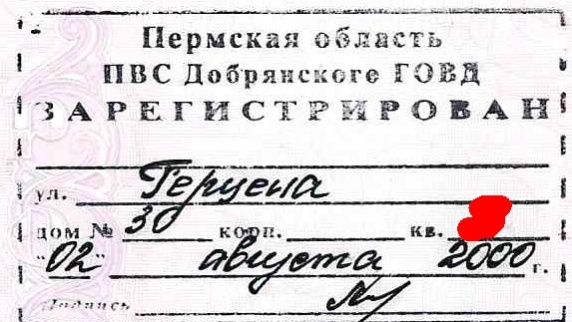 Пермская область
ПВС Добрянского ГОВД
ЗАРЕГИСТРИРОВАН
ул. Герцена
дом № 30 корп. кв.
"02" августа 2000 г.
Подпись